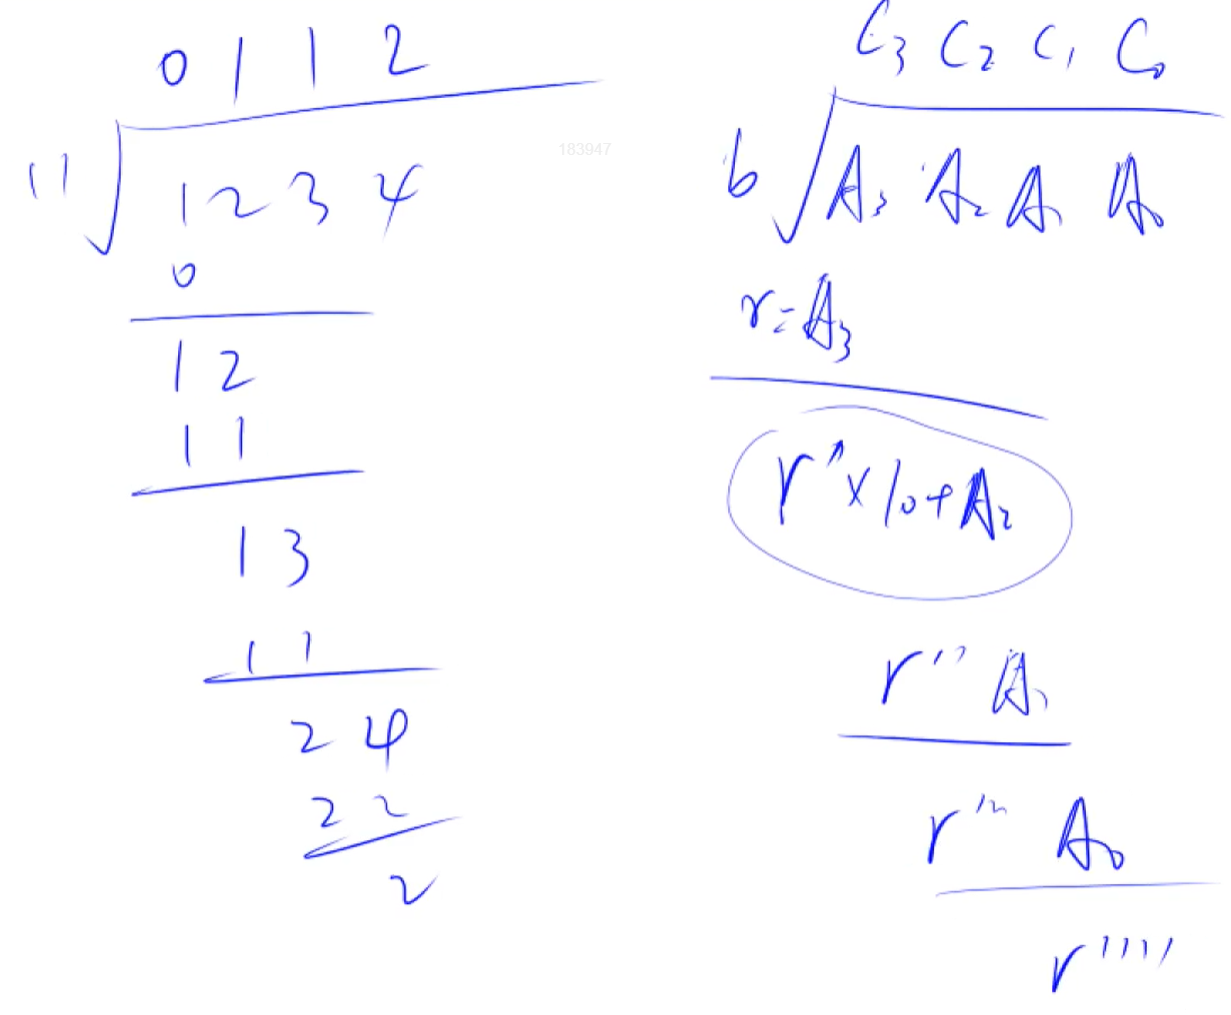 0 1 1 2
11 1 2 3 4
0
1 2
1 1
1 3
1 1
2 4
2 2
2
C₃ C₂ C₁ C₀
b A₃ A₂ A₁ A₀
r = A₃
r' × 10 + A₂
r'' A₁
r''' A₀
r''''
183947